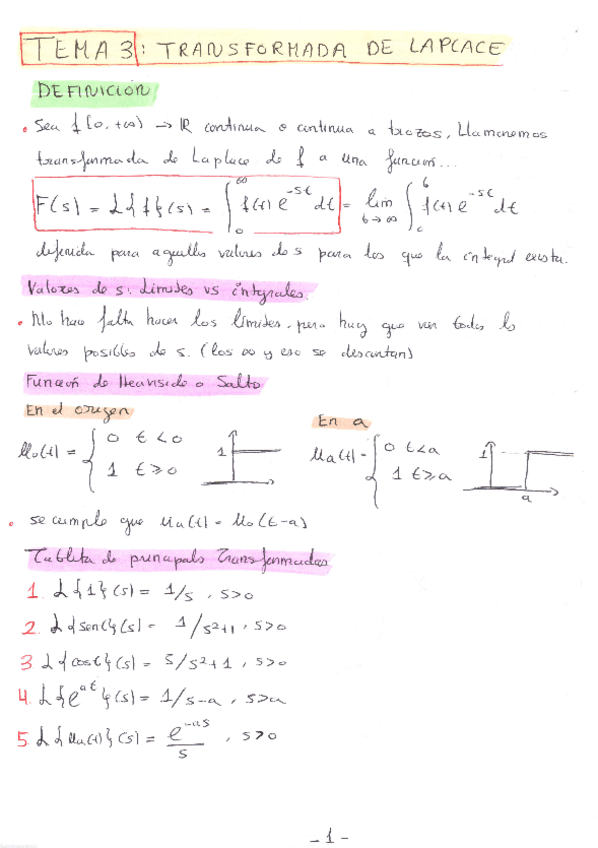 TEMA 3: TRANSFORMADA DE LAPLACE
DEFINICIÓN
• Sea f [0, +∞) → ℝ continua o continua a trozos, llamaremos
transformada de Laplace de f a una función...
F(s) = L{f}(s) = ∫₀^∞ f(t) e^-st dt = lim b→∞ ∫₀^b f(t) e^-st dt
definida para aquellos valores de s para los que la integral exista.
Valores de s: límites vs integrales.
• No hace falta hacer los límites, pero hay que ver todos los
valores posibles de s. (los ∞ y eso se descartan)
Función de Heaviside o Salto
En el origen
μ₀(t) = { 0 t < 0
1 t ≥ 0
1
En a
μa(t) = { 0 t < a
1 t ≥ a
1
a
• se cumple que μa(t) = μ₀(t-a)
Tablita de principales Transformadas
1. L{1}(s) = 1/s , s>0
2. L{sent}(s) = 1/s²+1 , s>0
3 L{cost}(s) = s/s²+1 , s>0
4. L{e^at}(s) = 1/s-a , s>a
5. L{μa(t)}(s) = e^-as/s , s>0
- 1 -